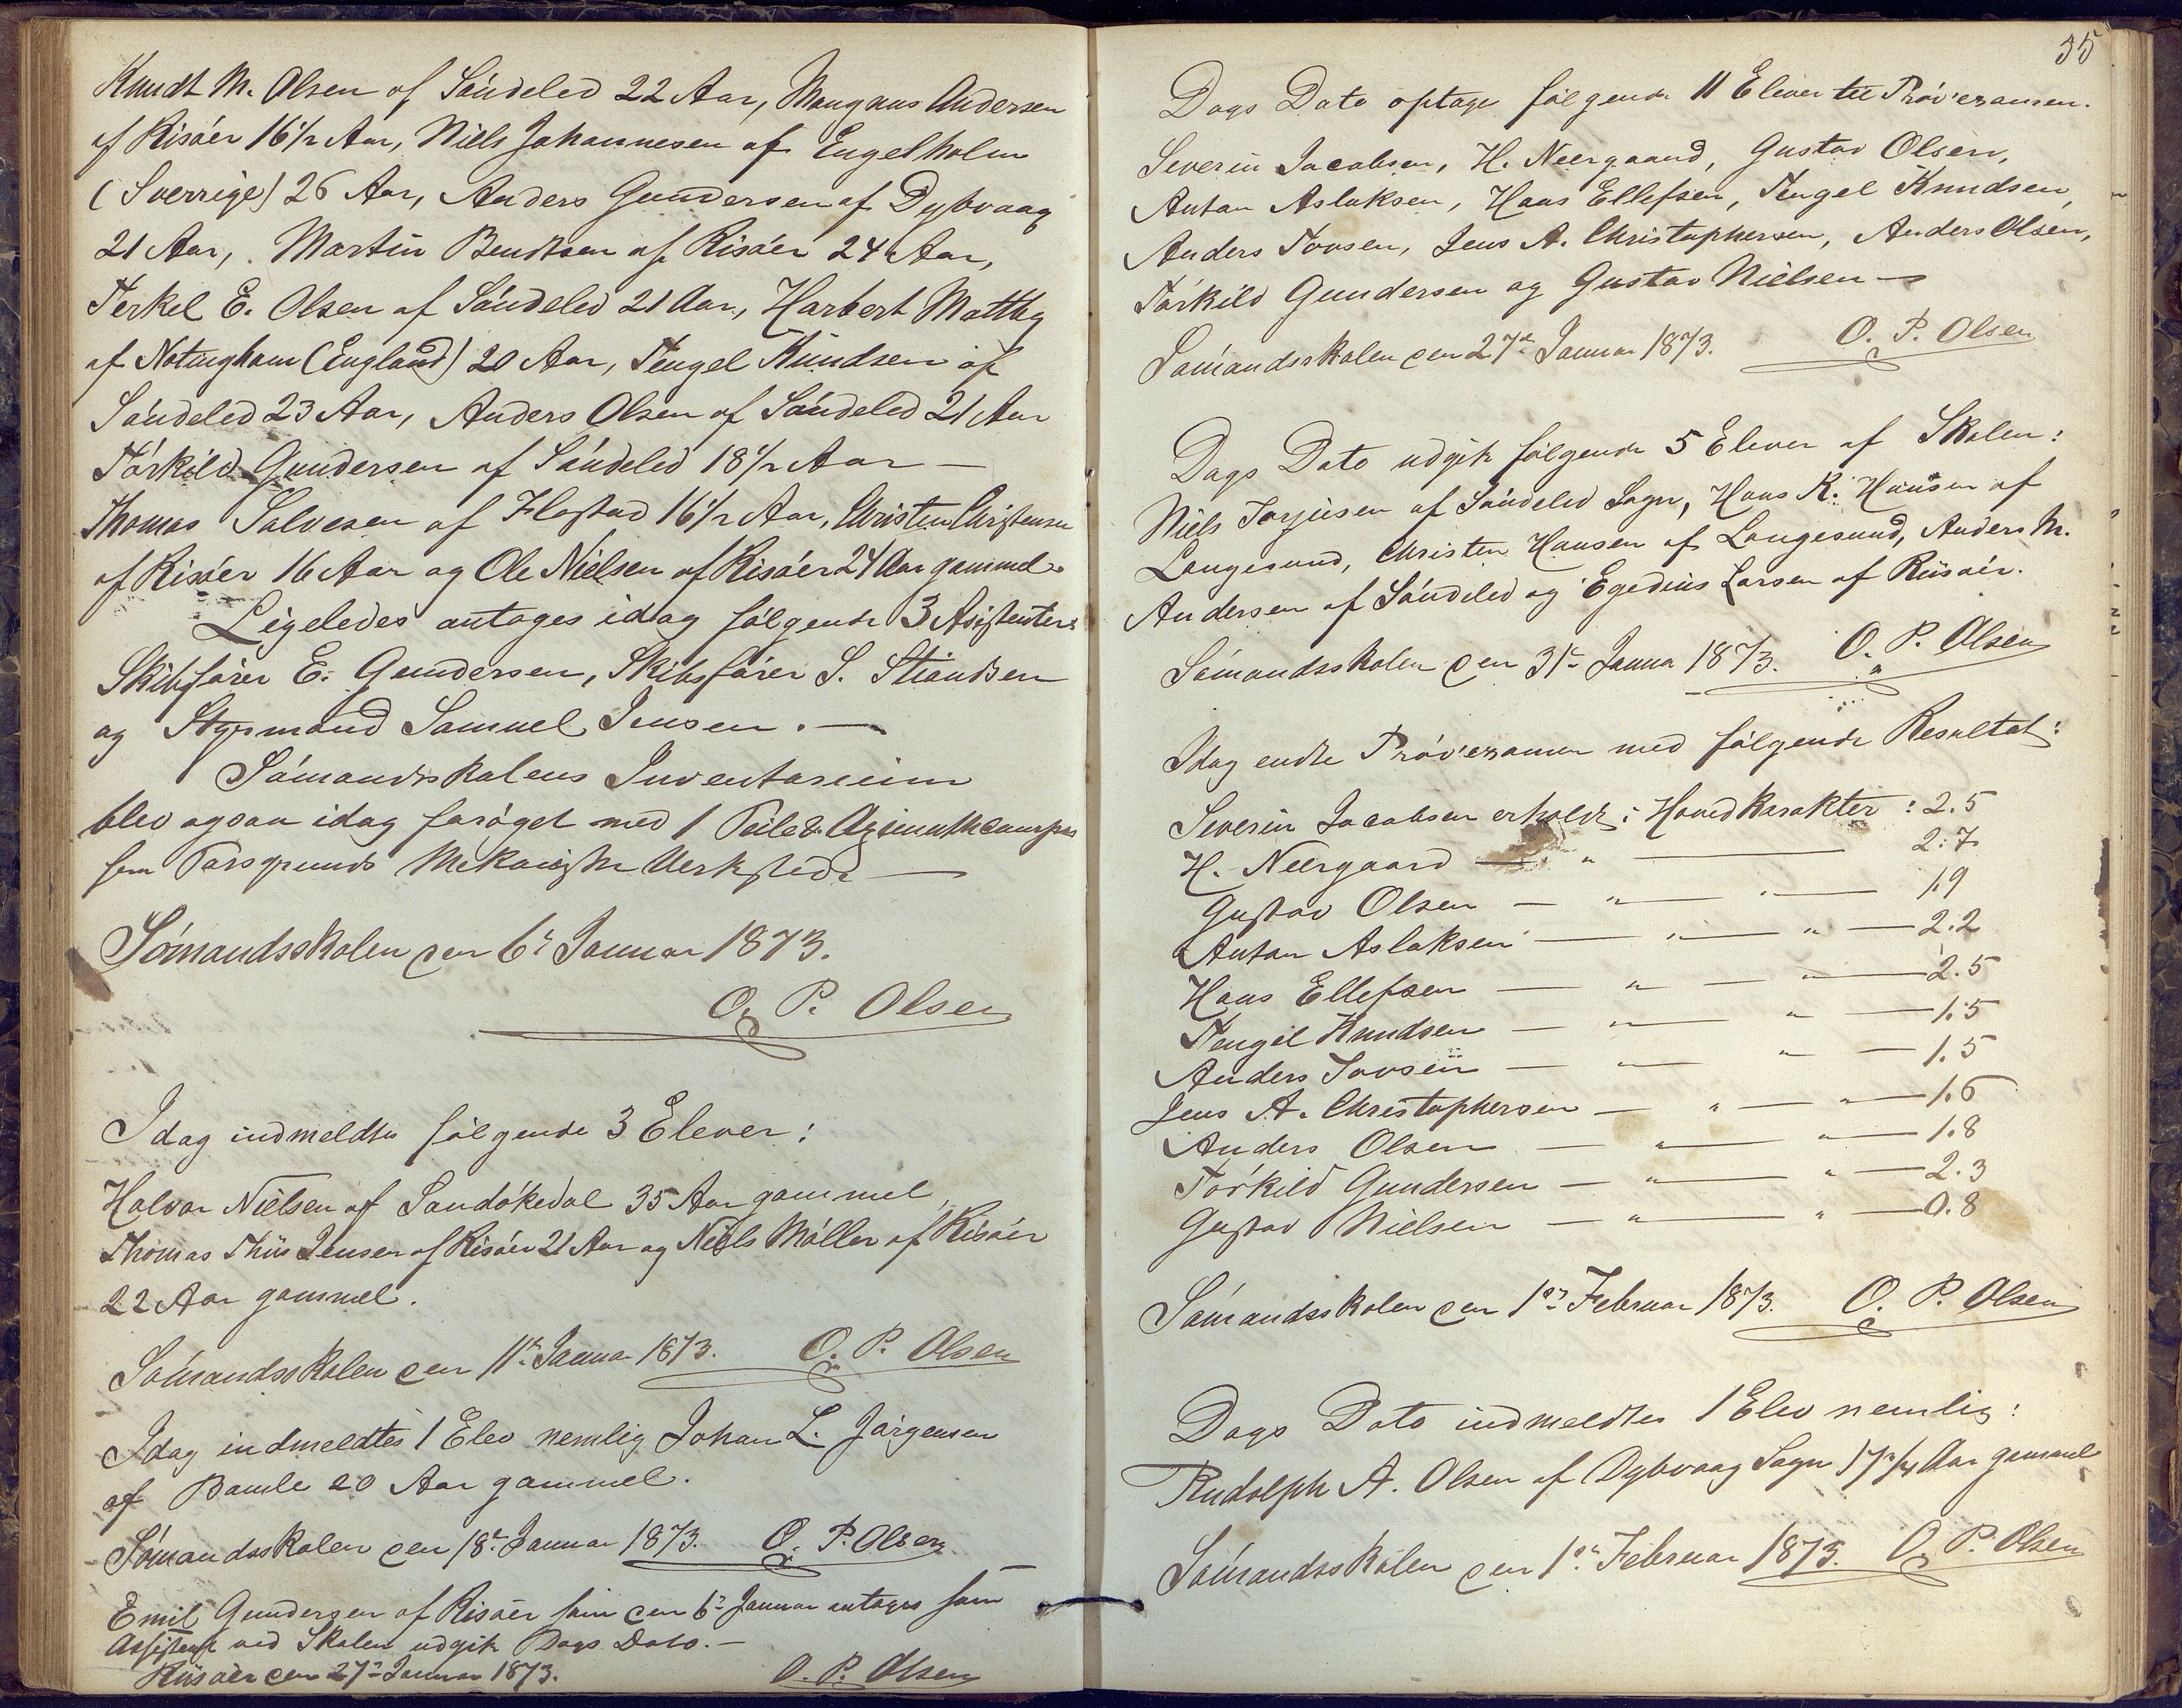 Knudt M. Olsen af Söndeled 22 Aar, Mangnus Andersen
af Risöer 16½ Aar, Niels Johannesen af Engelholm
(Sverrige) 26 Aar, Anders Gundersen af Dybvaag
21 Aar, Martin Bendtsen af Risöer 24 Aar,
Terkel E. Olsen af Söndeled 21 Aar, Harbert Matthy
af Notingham (England) 20 Aar, Tengel Knudsen af
Söndeled 23 Aar, Anders Olsen af Söndeled 21 Aar
Törkild Gundersen af Söndeled 18½ Aar —
Thomas Salvesen af Flostad 16½ Aar, Christen Christensen
af Risöer 16 Aar og Ole Nielsen af Risöer 24 Aar gammel.
Ligeledes antoges idag fölgende 3 Asistenter:
Skibsförer E. Gundersen, Skibsförer S. Stiandsen
og Styrmand Samuel Jensen. —
Sömandsskolens Inventarium
blev ogsaa idag foröget med 1 Peile & Azimuthcompas
fra Porsgrunds Mekaniske Verksted —
Sömandsskolen den 6te Januar 1873.
O. P. Olsen
Idag indmeldtes fölgende 3 Elever:
Halvor Nielsen af Sandökedal 35 Aar gammel,
Thomas Thiis Jensen af Risöer 21 Aar og Niels Möller af Risöer
22 Aar gammel.
Sömandsskolen den 11te Januar 1873. O. P. Olsen
Idag indmeldtes 1 Elev nemlig Johan L. Jörgensen
af Bamle 20 Aar gammel.
Sömandsskolen den 18de Januar 1873. O. P. Olsen
Emil Gundersen af Risöer som den 6te Januar antoges som
Assistent ved Skolen udgik Dags Dato. —
Riisöer den 27de Januar 1873. O. P. Olsen
35
Dags Dato optages fölgende 11 Elever til Pröveexamen.
Severin Jacobsen, H. Neergaard, Gustav Olsen,
Anton Aslaksen, Hans Ellefsen, Tengel Knudsen,
Anders Tovsen, Jens A. Christophersen, Anders Olsen,
Törkild Gundersen og Gustav Nielsen —
Sömandsskolen den 27de Januar 1873. O. P. Olsen
Dags Dato udgik fölgende 5 Elever af Skolen:
Niels Torjusen af Söndeled Sogn, Hans K. Hansen af
Langesund, Christen Hansen af Langesund, Anders M.
Andersen af Söndeled og Egedius Larsen af Riisöer.
Sömandsskolen den 31te Janua 1873. O. P. Olsen
Idag endte Pröveexamen med fölgende Resultat:
Severin Jacobsen erholdt i Hovedkarakter: 2.5
H. Neergaard — " — 2.7
Gustav Olsen — " — " — 1.9
Anton Aslaksen — " — " — 2.2
Hans Ellefsen — " — " — 2.5
Tengel Knudsen — " — " — 1.5
Anders Tovsen — " — " — 1.5
Jens A. Christophersen — " — " — 1.6
Anders Olsen — " — " — 1.8
Törkild Gundersen — " — " — 2.3
Gustav Nielsen — " — " — 0.8
Sömandsskolen den 1ste Februar 1873. O. P. Olsen
Dags Dato indmeldtes 1 Elev nemlig:
Rudolph A. Olsen af Dybvaag Sogn 17¾ Aar gammel
Sömandsskolen den 1ste Februar 1873. O. P. Olsen